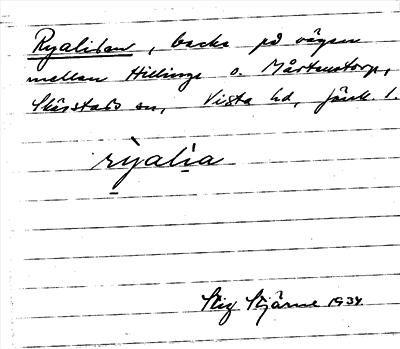 Ryalidan, backe på vägen
mellan Hillinge o. Mårtenstorp,
Skärstads sn, Vista hd, Jönk. l.
rỳalı̣a
Stig Stjärne 1934.